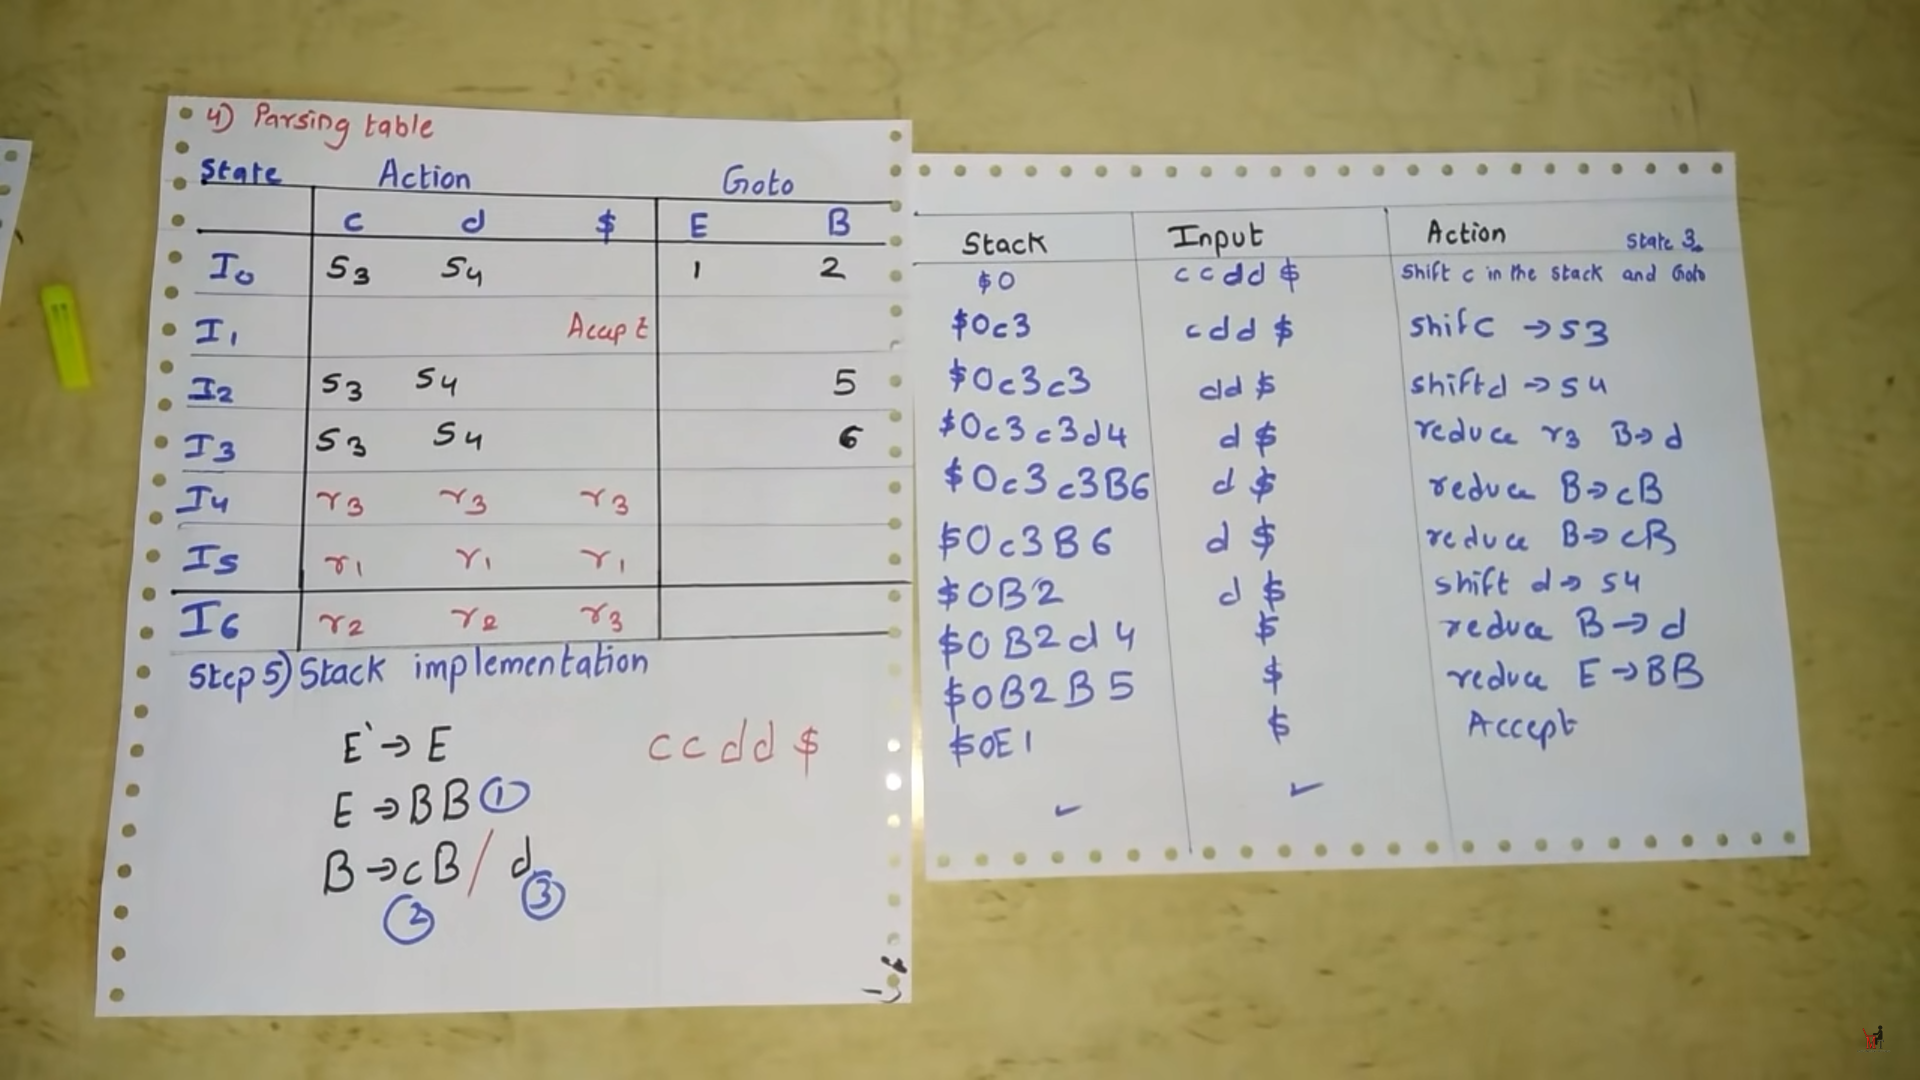 4) Parsing table
State Action Goto
c d $ E B
I0 S3 S4 1 2
I1 Accept
I2 S3 S4 5
I3 S3 S4 6
I4 r3 r3 r3
I5 r1 r1 r1
I6 r2 r2 r3
Step 5) Stack implementation
E' → E
ccdd$
E → BB ①
B → cB / d
② ③
Stack Input Action State 3.
$0 ccdd$ Shift c in the stack and Goto
$0c3 cdd$ shifc → S3
$0c3c3 dd$ shiftd → S4
$0c3c3d4 d$ reduce r3 B→d
$0c3c3B6 d$ reduce B→cB
$0c3B6 d$ reduce B→cB
$0B2 d$ shift d→ S4
$0B2d4 $ reduce B→d
$0B2B5 $ reduce E→BB
$0E1 $ Accept